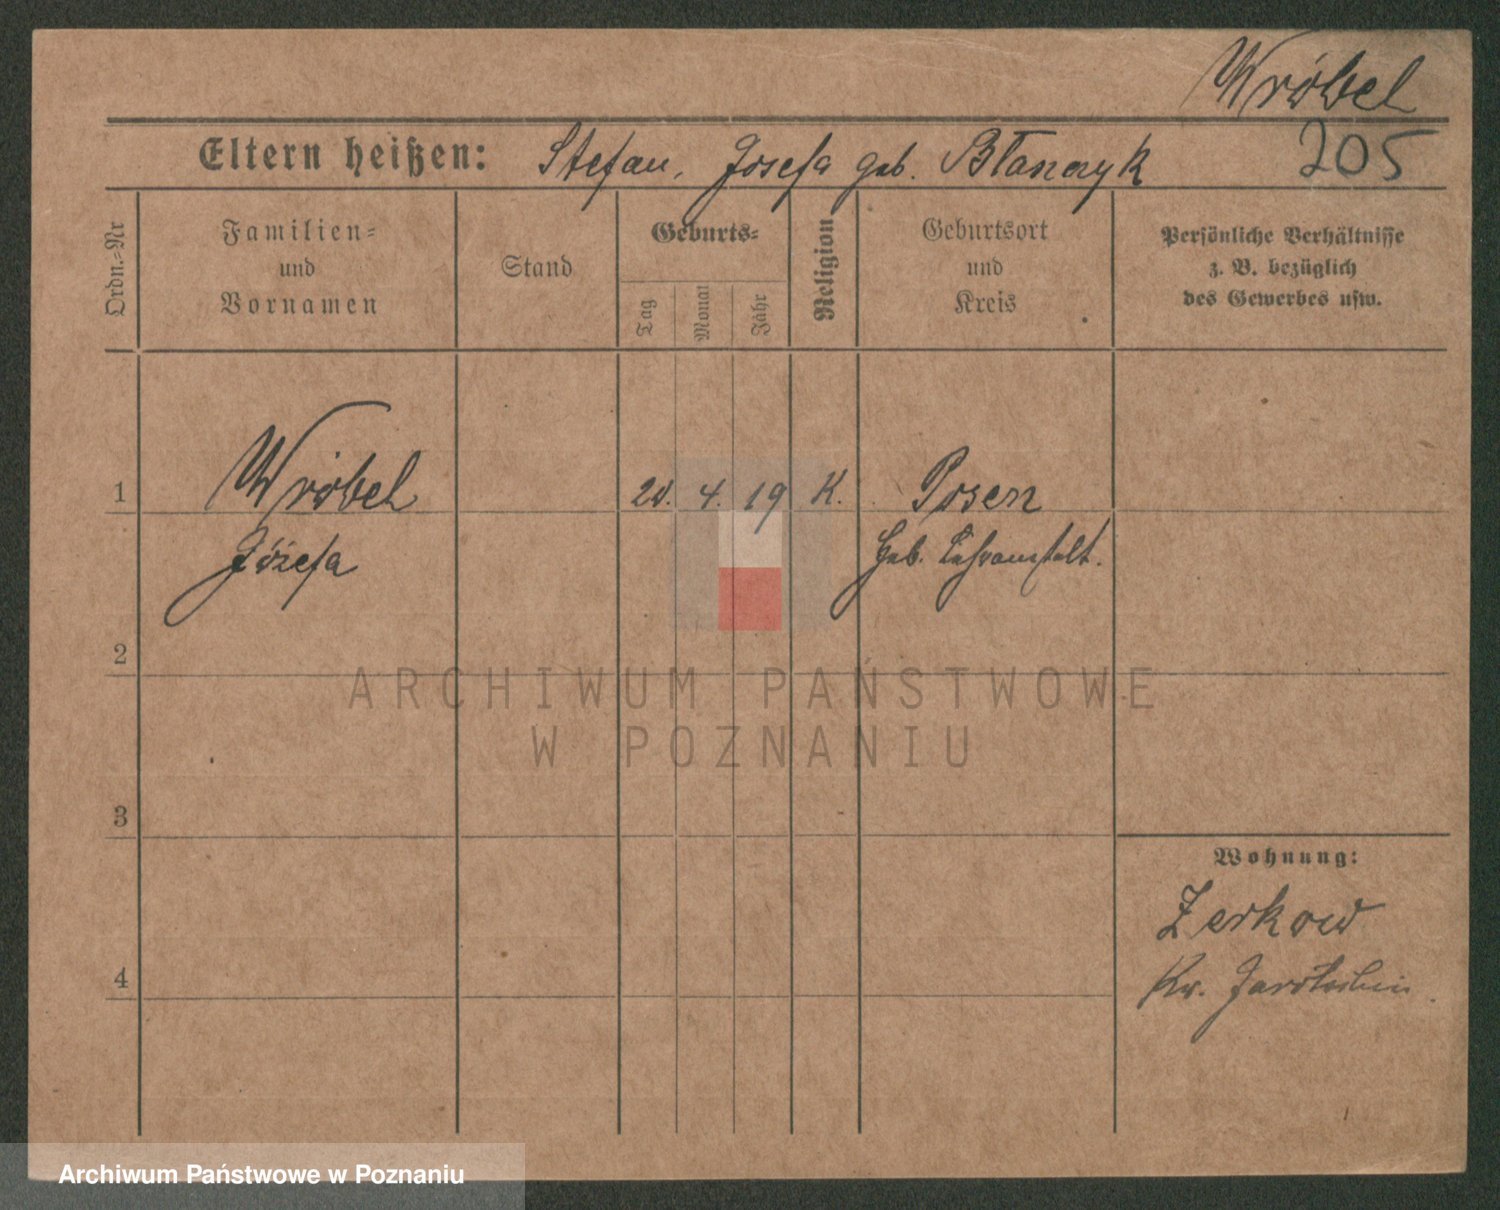 Wróbel
Eltern heißen: Stefan, Josefa geb. Błaszczyk
205
Ordn.-Nr
Familien-
und
Vornamen
Stand
Geburts-
Tag
Monat
Jahr
Religion
Geburtsort
und
Kreis
Persönliche Verhältnisse
z. B. bezüglich
des Gewerbes usw.
1 Wróbel 20. 4. 19 K. Posen
Józefa Heb. Lehranstalt.
2
ARCHIWUM PAŃSTWOWE
W POZNANIU
3
Wohnung:
Zerkow
4
Kr. Jarotschin.
Archiwum Państwowe w Poznaniu